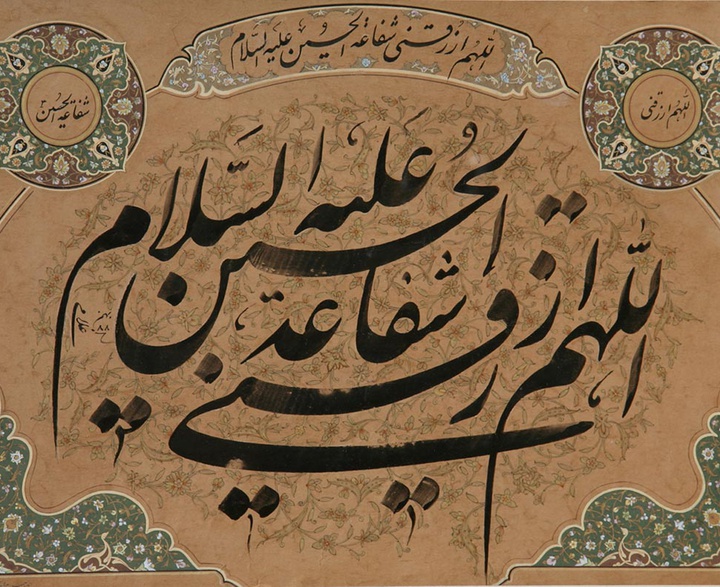 اللهم ارزقنی شفاعة الحسین علیه السلام
شفاعة الحسین
اللهم ارزقنی
اللهم ارزقنی شفاعة الحسین علیه السلام
۸۸